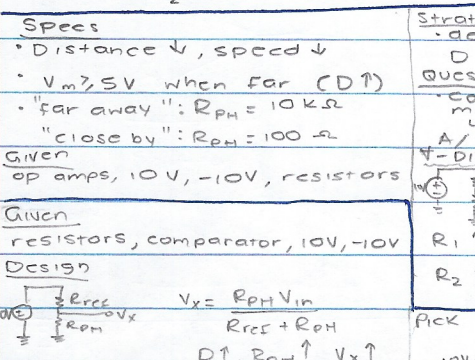 Specs
• Distance ↓, speed ↓
• Vm ≥ 5V when far (D↑)
• "far away": RPH = 10 kΩ
"close by": RPH = 100 Ω
Given
op amps, 10 V, -10V, resistors
Given
resistors, comparator, 10V, -10V
Design
Rres
RPH
Vx
Vx = RPH Vin / Rres + RPH
D↑ RPH↑ Vx↑
Strat
• de
D
Ques
• co
m
A/
R1
R2
Pick